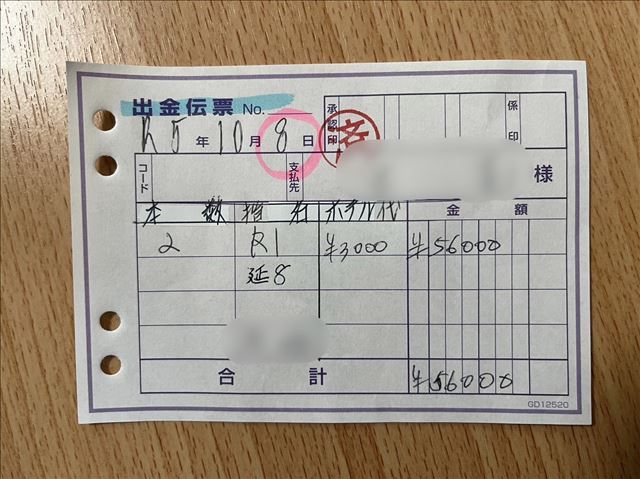 出金伝票 No.
承認印
係印
R5年10月8日
済
コード
支払先
様
本数 指名 ホテル代 金額
2 R1 ¥3000 ¥56000
延8
合計 ¥56000
GD12520